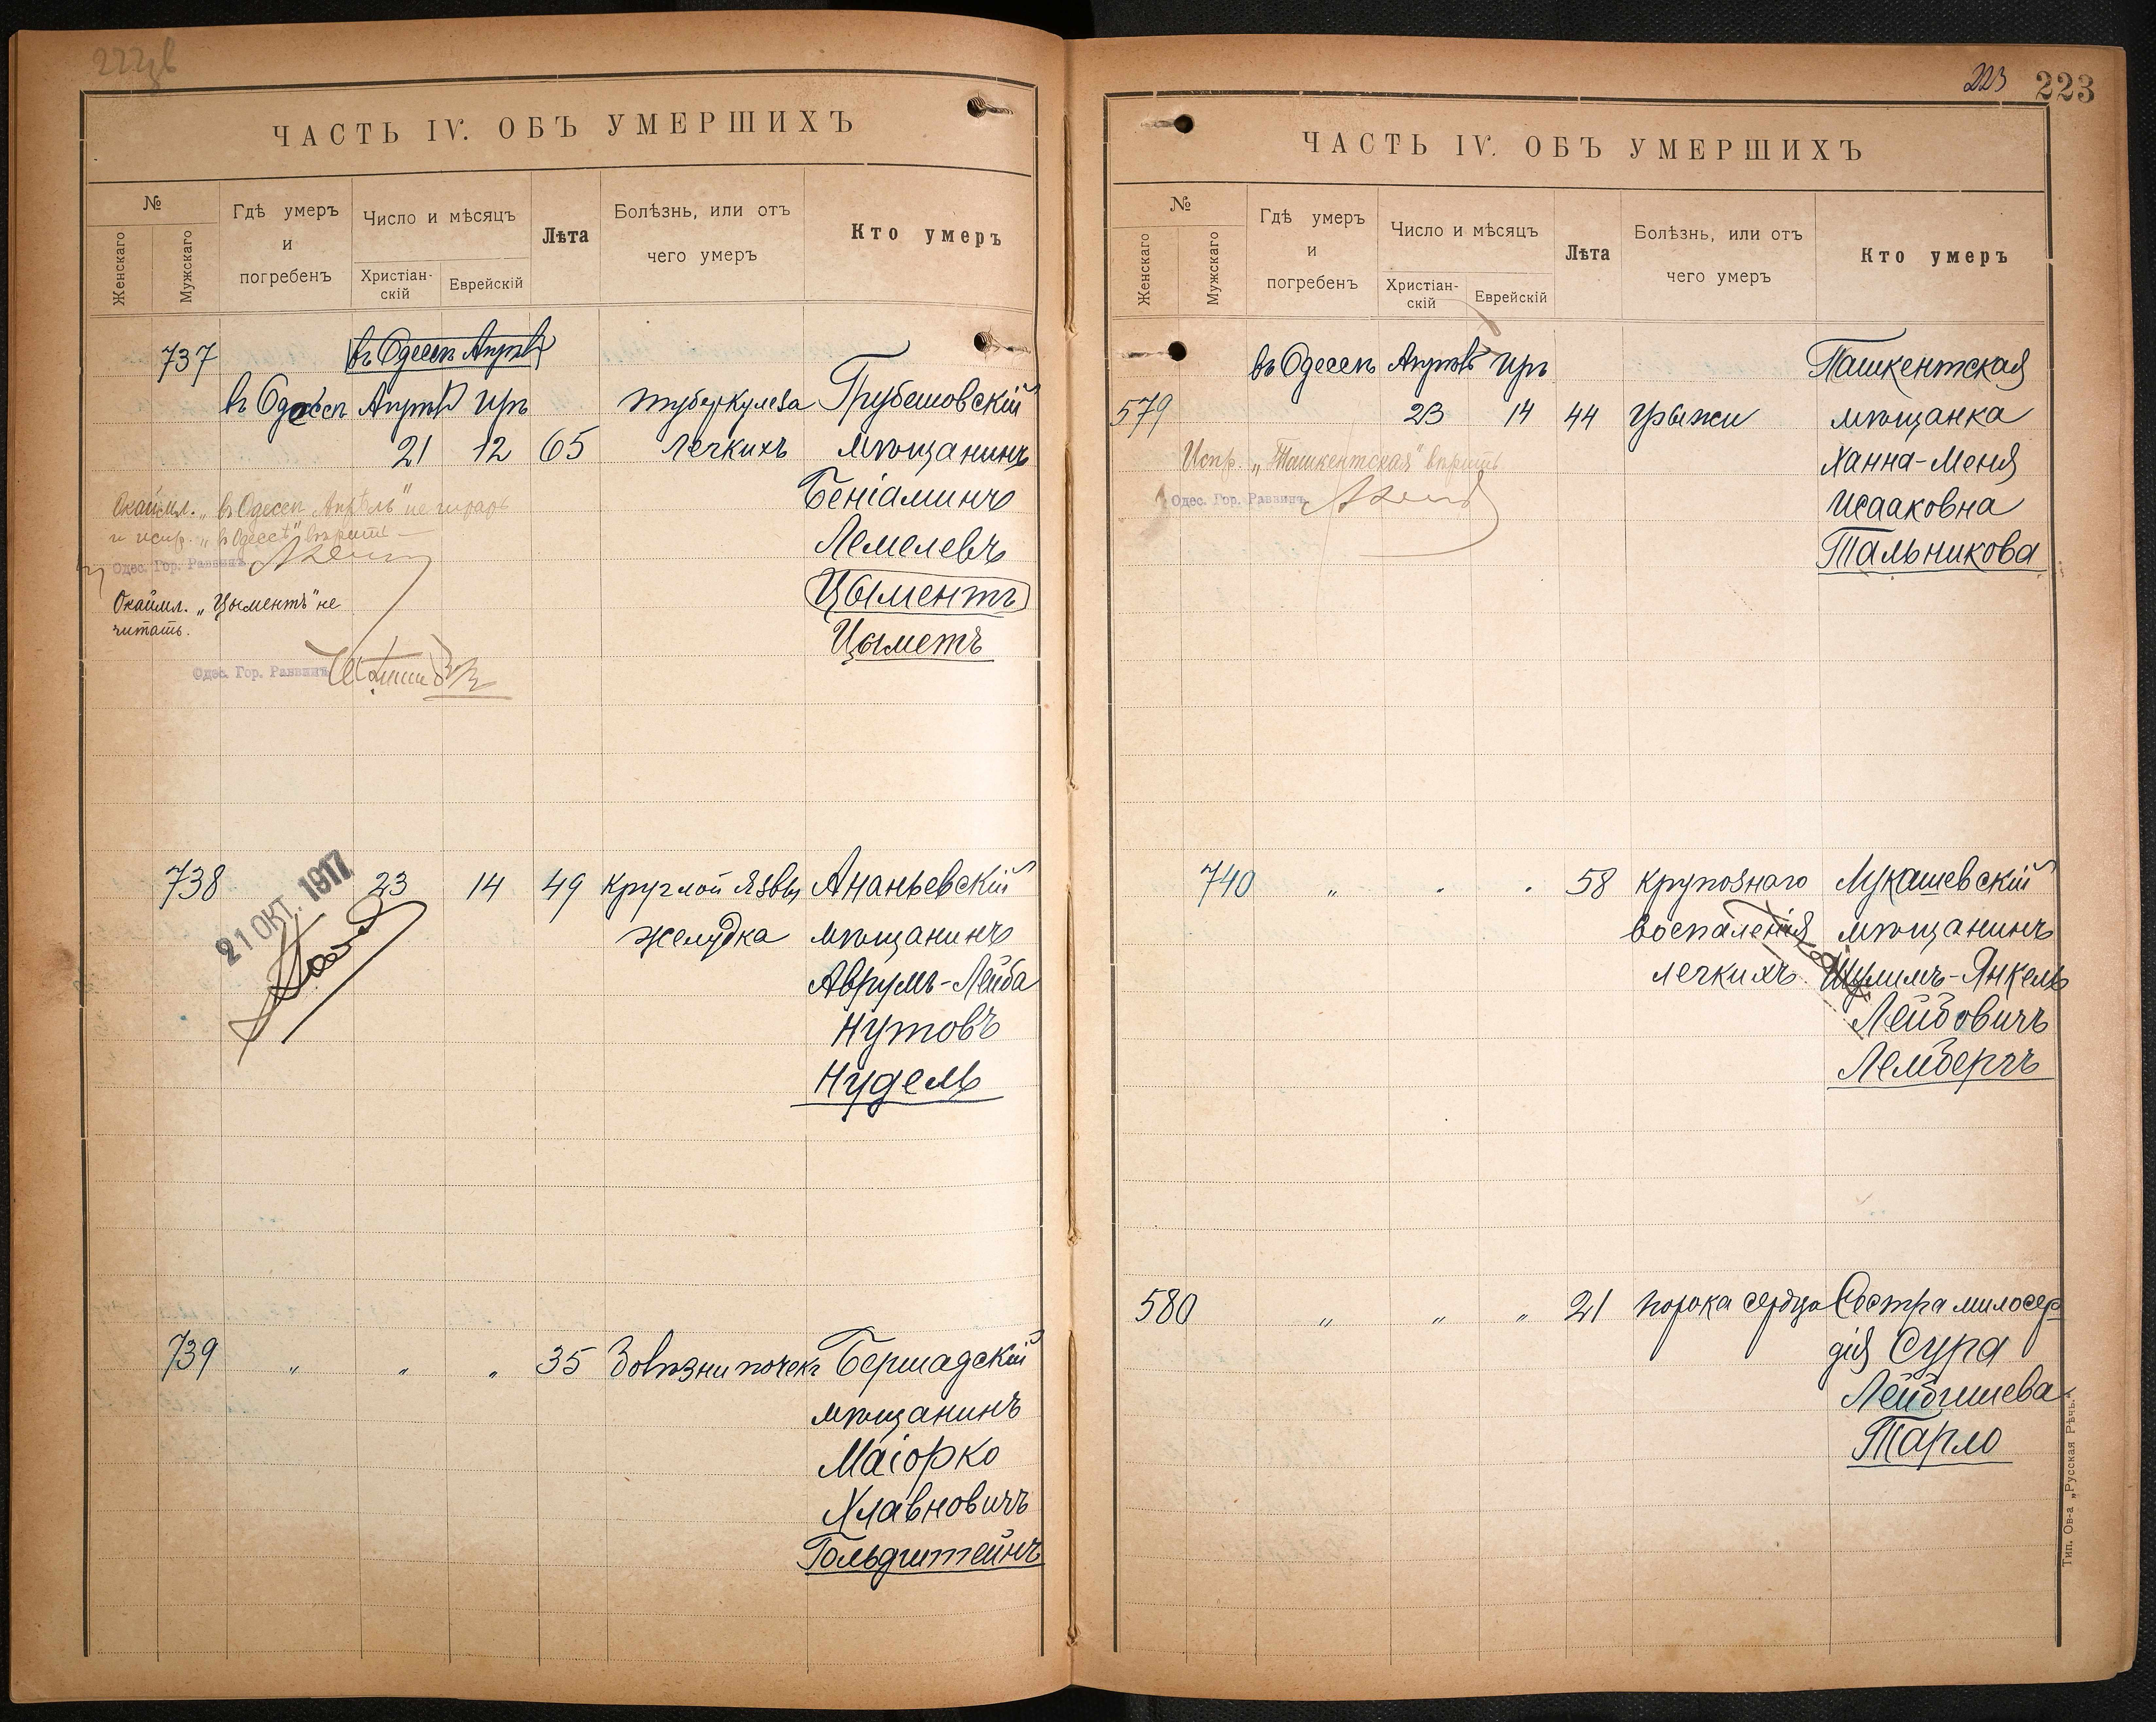 ЧАСТЬ IV. ОБЪ УМЕРШИХЪ
№
Женскаго
Мужскаго
Гдѣ умеръ
и
погребенъ
Число и мѣсяцъ
Христіан-
скій
Еврейскій
Лѣта
Болѣзнь, или отъ
чего умеръ
Кто умеръ
737
въ Одессѣ Апрѣль
въ Одессѣ Апрѣль Иръ туберкулеза Грубешовскій
21 12 65 легкихъ мѣщанинъ
Беніаминъ
Лемелевъ
Цыментъ
Цыметъ
Окаймл. „въ Одессѣ Апрѣль" не читать
и испр. „въ Одессѣ" вѣрить
Одес. Гор. Раввинъ
Окаймл. „Цыментъ" не
читать.
Одес. Гор. Раввинъ
738 23 14 49 круглой язвы Ананьевскій
желудка мѣщанинъ
Аврумъ-Лейба
Нутовъ
Нудель
21 ОКТ. 1917
739 „ „ „ 35 болѣзни почекъ Бершадскій
мѣщанинъ
Маіорко
Хлавновичъ
Гольдштейнъ
223 223
ЧАСТЬ IV. ОБЪ УМЕРШИХЪ
№
Женскаго
Мужскаго
Гдѣ умеръ
и
погребенъ
Число и мѣсяцъ
Христіан-
скій
Еврейскій
Лѣта
Болѣзнь, или отъ
чего умеръ
Кто умеръ
въ Одессѣ Апрѣль Иръ Ташкентская
579 23 14 44 грыжи мѣщанка
Ханна-Меня
Исааковна
Тальникова
Испр. „Ташкентская" вѣрить
Одес. Гор. Раввинъ
740 „ „ „ 58 крупознаго Лукашевскій
воспаленія мѣщанинъ
легкихъ Шулимъ-Янкель
Лейбовичъ
Лембергъ
580 „ „ „ 21 порока сердца Сестра милосер
дія Сура
Лейбишева
Тарло
Тип. Ов-а „Русская Рѣчь".